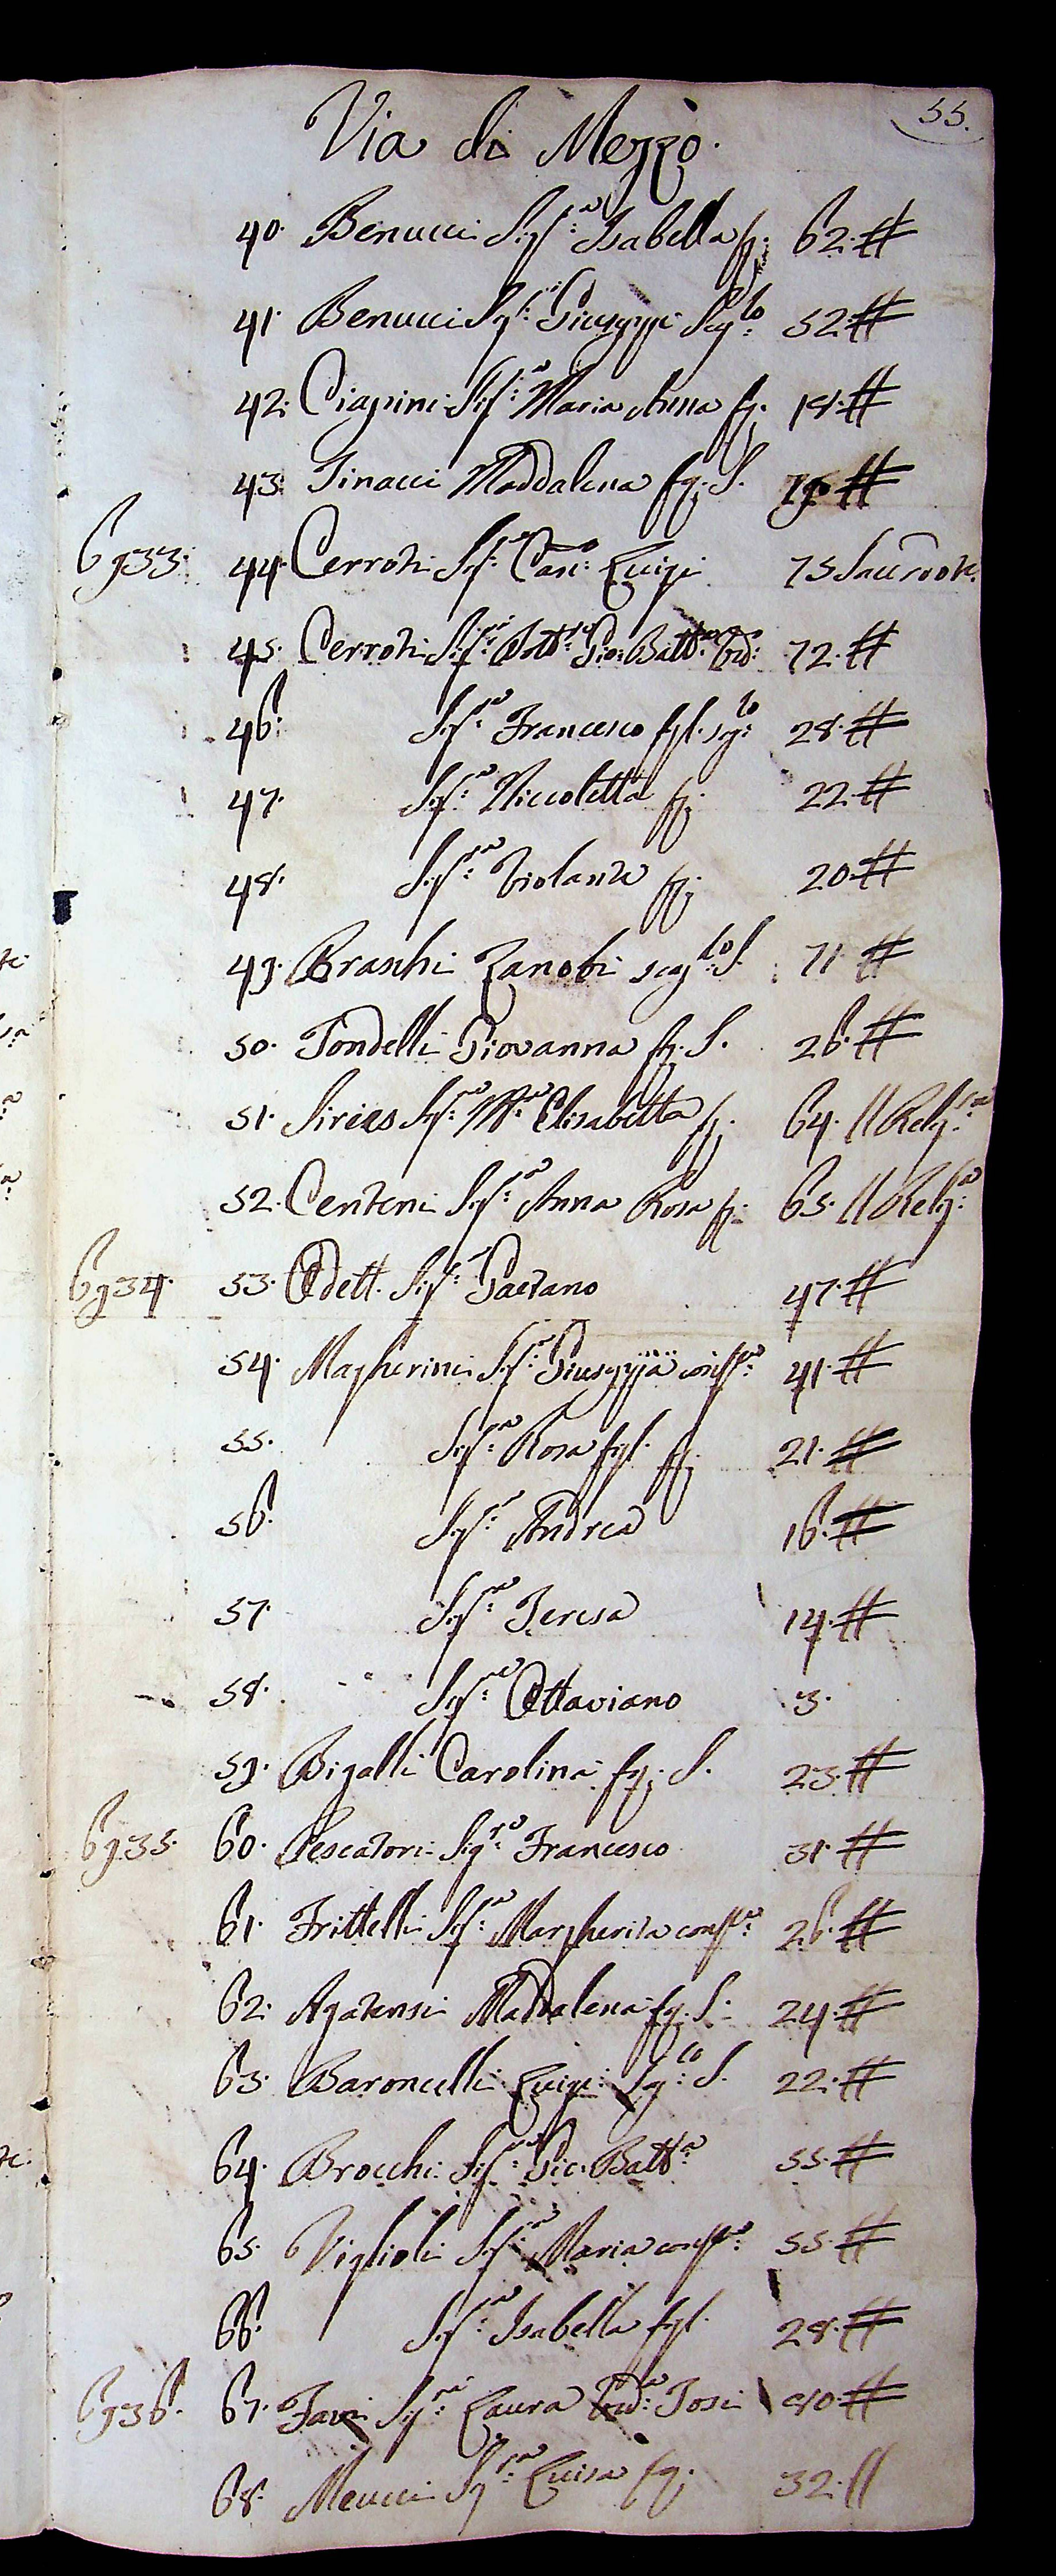 55.
Via di Mezzo.
40. Benucci Sig.ra Isabella fg. 62. #
41. Benucci Sig.r Giuseppe Scg.lo 52. #
42. Ciapini Sig.ra Maria Anna fg. 18. #
43. Tinacci Maddalena fg. S. #
6933. 44. Cerroti Sig.r Can.co Luigi 75 Sacerdote.
45. Cerroti Sig.r Dott.re Gio: Batt.a Ved.o 72. #
46. Sig.r Francesco figl. scg.lo 28. #
47. Sig.ra Niccoletta fg. 22. #
48. Sig.ra Violante fg. 20. #
49. Braschi Zanobi scg.lo S. 71. #
50. Tondelli Giovanna fg. S. 26. #
51. Siries Sig.ra M.a Elisabetta fg. 64. //
52. Centeni Sig.ra Anna Rosa fg. 65. //
6934. 53. Odett. Sig.r Gaetano 47. #
54. Magherini Sig.ra Giuseppa cons.te 41. #
55. Sig.ra Rosa figl. fg. 21. #
56. Sig.r Andrea 16. #
57. Sig.ra Teresa 14. #
58. Sig.re Ottaviano 3.
59. Bigalli Carolina fg. S. 23. #
6935. 60. Pescatori Sig.re Francesco 31. #
61. Frittelli Sig.ra Margherita cons.te 26. #
62. Agatensi Maddalena fg. S. 24. #
63. Baroncelli Luigi Sg.lo S. 22. #
64. Brocchi Sig.r Gio. Batt.a 55. #
65. Viglioli Sig.ra Maria cons.te 55. #
66. Sig.ra Isabella figl. 28. #
6936. 67. Favi Sig.ra Laura Ved.a Tosi #
68. Meucci Sig.ra Luisa fg. 32. //